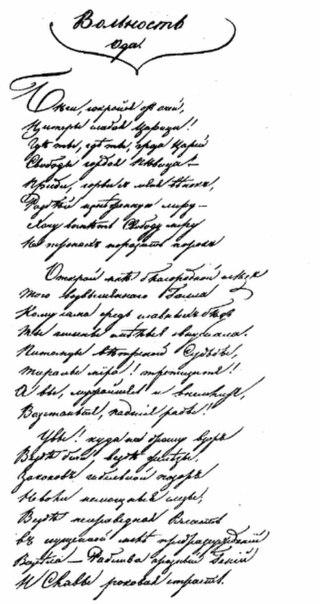 Вольность
Ода.
Бѣги, сокройся отъ очей,
Цитеры слабая Царица!
Гдѣ ты, гдѣ ты, гроза Царей
Свободы гордая Пѣвица? —
Приди, сорви съ меня вѣнокъ,
Разбей изнѣженную лиру —
Хочу воспѣть Свободу міру
На тронахъ поразить порокъ
Открой мнѣ благородной слѣдъ
Того возвышеннаго Галла
Кому сама средь славныхъ бѣдъ
Ты гимны смѣлые внушала.
Питомцы вѣтреной Судьбы,
Тираны міра! трепещите!
А вы, мужайтесь и внемлите,
Возстаньте, падшіе рабы!
Увы! куда ни брошу взоръ
Вездѣ бичи вездѣ желѣзы
Законовъ гибельной позоръ
Неволи немощныя слезы;
Вездѣ неправедная Власть
въ сгущенной мглѣ предразсужденій
Возсѣла — Рабства грозный Геній
И Славы роковая страсть.